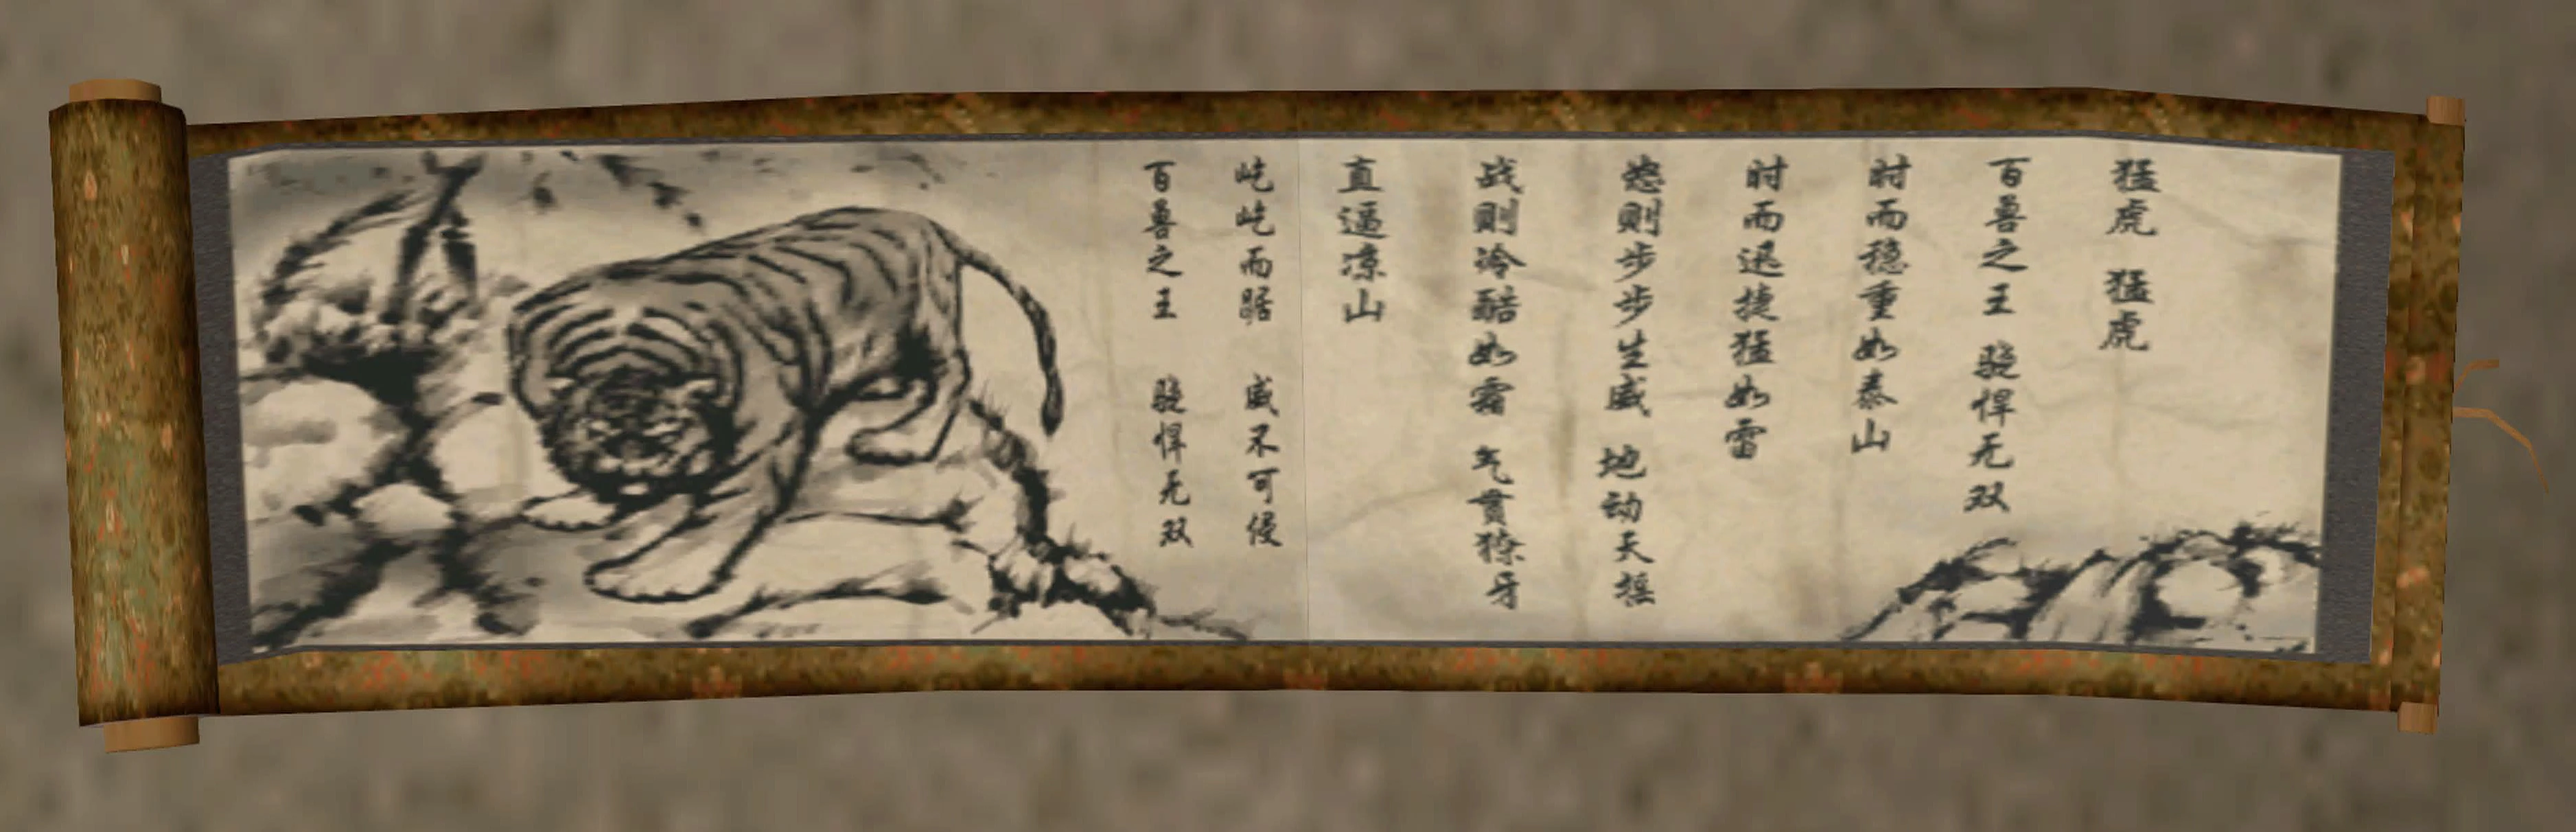 猛虎 猛虎
百兽之王 骁悍无双
时而稳重如泰山
时而迅捷猛如雷
怒则步步生威 地动天摇
战则冷酷如霜 气贯獠牙
直逼凉山
屹屹而踞 威不可侵
百兽之王 骁悍无双